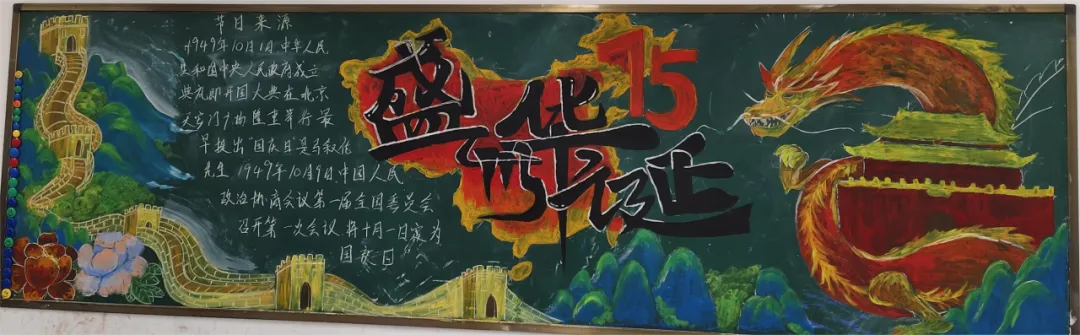 节日来源
1949年10月1日中华人民
共和国中央人民政府成立
典礼即开国大典在北京
天安门广场隆重举行最
早提出"国庆日"是马叙伦
先生 1949年10月9日中国人民
政治协商会议第一届全国委员会
召开第一次会议将十月一日定为
国庆日
75
盛世华诞